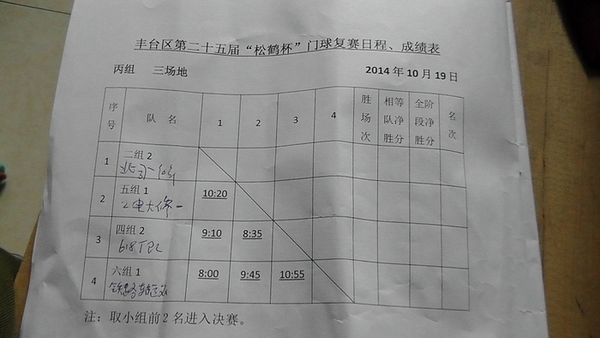 丰台区第二十五届“松鹤杯”门球复赛日程、成绩表
丙组 三场地 2014年10月19日
序号 队名 1 2 3 4 胜场次 相等队净胜分 全阶段净胜分 名次
1 二组2
2 五组1 10:20
3 四组2 9:10 8:35
4 六组1 8:00 9:45 10:55
注：取小组前2名进入决赛。